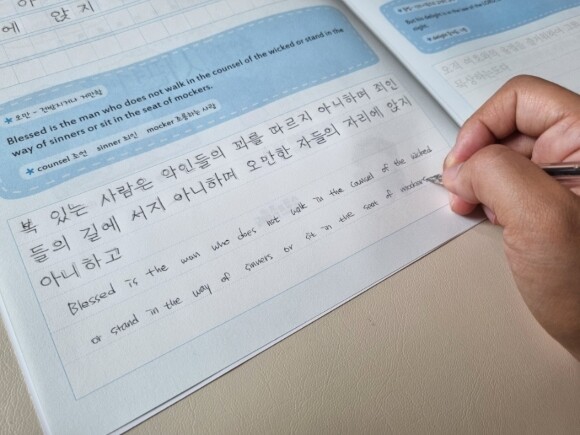 에 앉 지
* 오만 - 건방지거나 거만함
Blessed is the man who does not walk in the counsel of the wicked or stand in the
way of sinners or sit in the seat of mockers.
* counsel 조언 sinner 죄인 mocker 조롱하는 사람
복 있는 사람은 악인들의 꾀를 따르지 아니하며 죄인
들의 길에 서지 아니하며 오만한 자들의 자리에 앉지
아니하고
Blessed is the man who does not walk in the counsel of the wicked
or stand in the way of sinners or sit in the seat of mockers